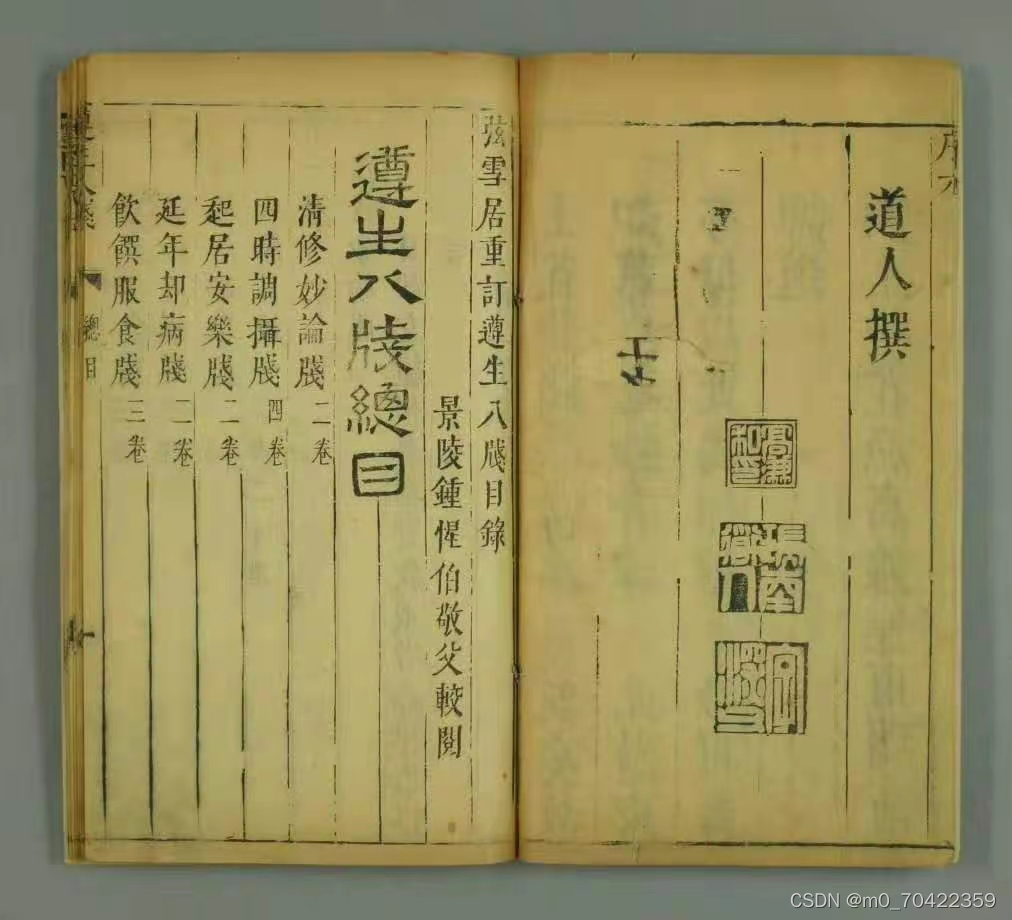 道人撰
瑞南道人
弦雪居重訂遵生八牋目錄
景陵鍾惺伯敬父較閱
遵生八牋總目
清修妙論牋 二卷
四時調攝牋 四卷
起居安樂牋 二卷
延年却病牋 二卷
飲饌服食牋 三卷
遵生八牋 總目
CSDN @m0_70422359